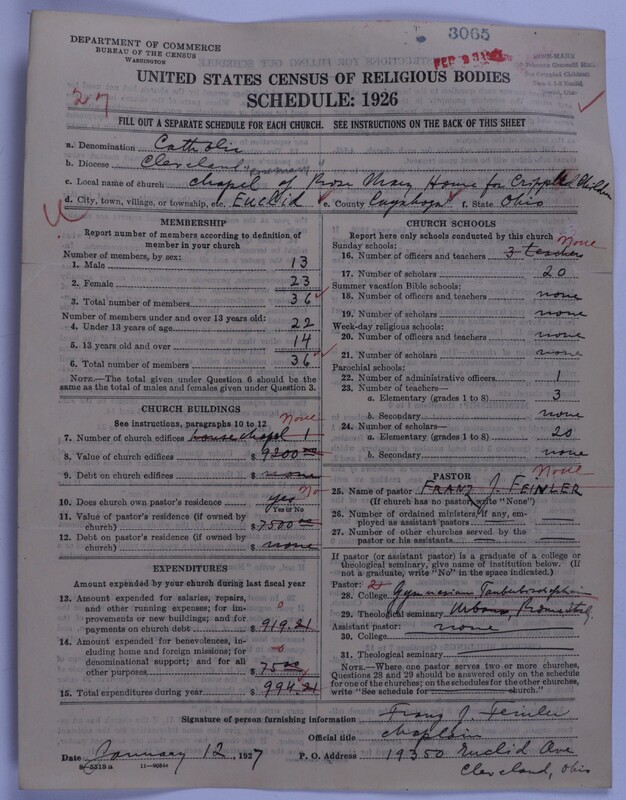 3065
DEPARTMENT OF COMMERCE
BUREAU OF THE CENSUS
WASHINGTON
FEB
UNITED STATES CENSUS OF RELIGIOUS BODIES
SCHEDULE: 1926
27
FILL OUT A SEPARATE SCHEDULE FOR EACH CHURCH. SEE INSTRUCTIONS ON THE BACK OF THIS SHEET
a. Denomination Catholic
b. Diocese Cleveland
c. Local name of church chapel of Rose Mary Home for Crippled Children
d. City, town, village, or township, etc. Euclid e. County Cuyahoga f. State Ohio
MEMBERSHIP
Report number of members according to definition of
member in your church
Number of members, by sex:
1. Male 13
2. Female 23
3. Total number of members 36
Number of members under and over 13 years old:
4. Under 13 years of age 22
5. 13 years old and over 14
6. Total number of members 36
NOTE.—The total given under Question 6 should be the
same as the total of males and females given under Question 3.
CHURCH BUILDINGS
See instructions, paragraphs 10 to 12 None
7. Number of church edifices house chapel 1
8. Value of church edifices $ 9200
9. Debt on church edifices $ none
No
10. Does church own pastor's residence yes
(Yes or No)
11. Value of pastor's residence (if owned by
church) $ 7500
12. Debt on pastor's residence (if owned by
church) $ none
EXPENDITURES
Amount expended by your church during last fiscal year
13. Amount expended for salaries, repairs,
and other running expenses; for im-
provements or new buildings; and for
payments on church debt $ 919.21
14. Amount expended for benevolences, in-
cluding home and foreign missions; for
denominational support; and for all
other purposes $ 75
15. Total expenditures during year $ 994.21
CHURCH SCHOOLS
Report here only schools conducted by this church
Sunday schools: None
16. Number of officers and teachers 3 teachers
17. Number of scholars 20
Summer vacation Bible schools:
18. Number of officers and teachers none
19. Number of scholars none
Week-day religious schools:
20. Number of officers and teachers none
21. Number of scholars none
Parochial schools:
22. Number of administrative officers 1
23. Number of teachers—
a. Elementary (grades 1 to 8) 3
b. Secondary none
24. Number of scholars—
a. Elementary (grades 1 to 8) 20
b. Secondary none
PASTOR None
25. Name of pastor FRANZ J. FEINLER
(If church has no pastor, write "None")
26. Number of ordained ministers, if any, em-
ployed as assistant pastors
27. Number of other churches served by the
pastor or his assistants
If pastor (or assistant pastor) is a graduate of a college or
theological seminary, give name of institution below. (If
not a graduate, write "No" in the space indicated.)
Pastor:
28. College Gymnasium
29. Theological seminary
Assistant pastor: none
30. College
31. Theological seminary
NOTE.—Where one pastor serves two or more churches,
Questions 28 and 29 should be answered only on the schedule
for one of the churches; on the schedules for the other churches,
write "See schedule for church."
Signature of person furnishing information Franz J. Feinler
Official title chaplain
Date January 12, 1927 P. O. Address 19350 Euclid Ave
Cleveland, Ohio